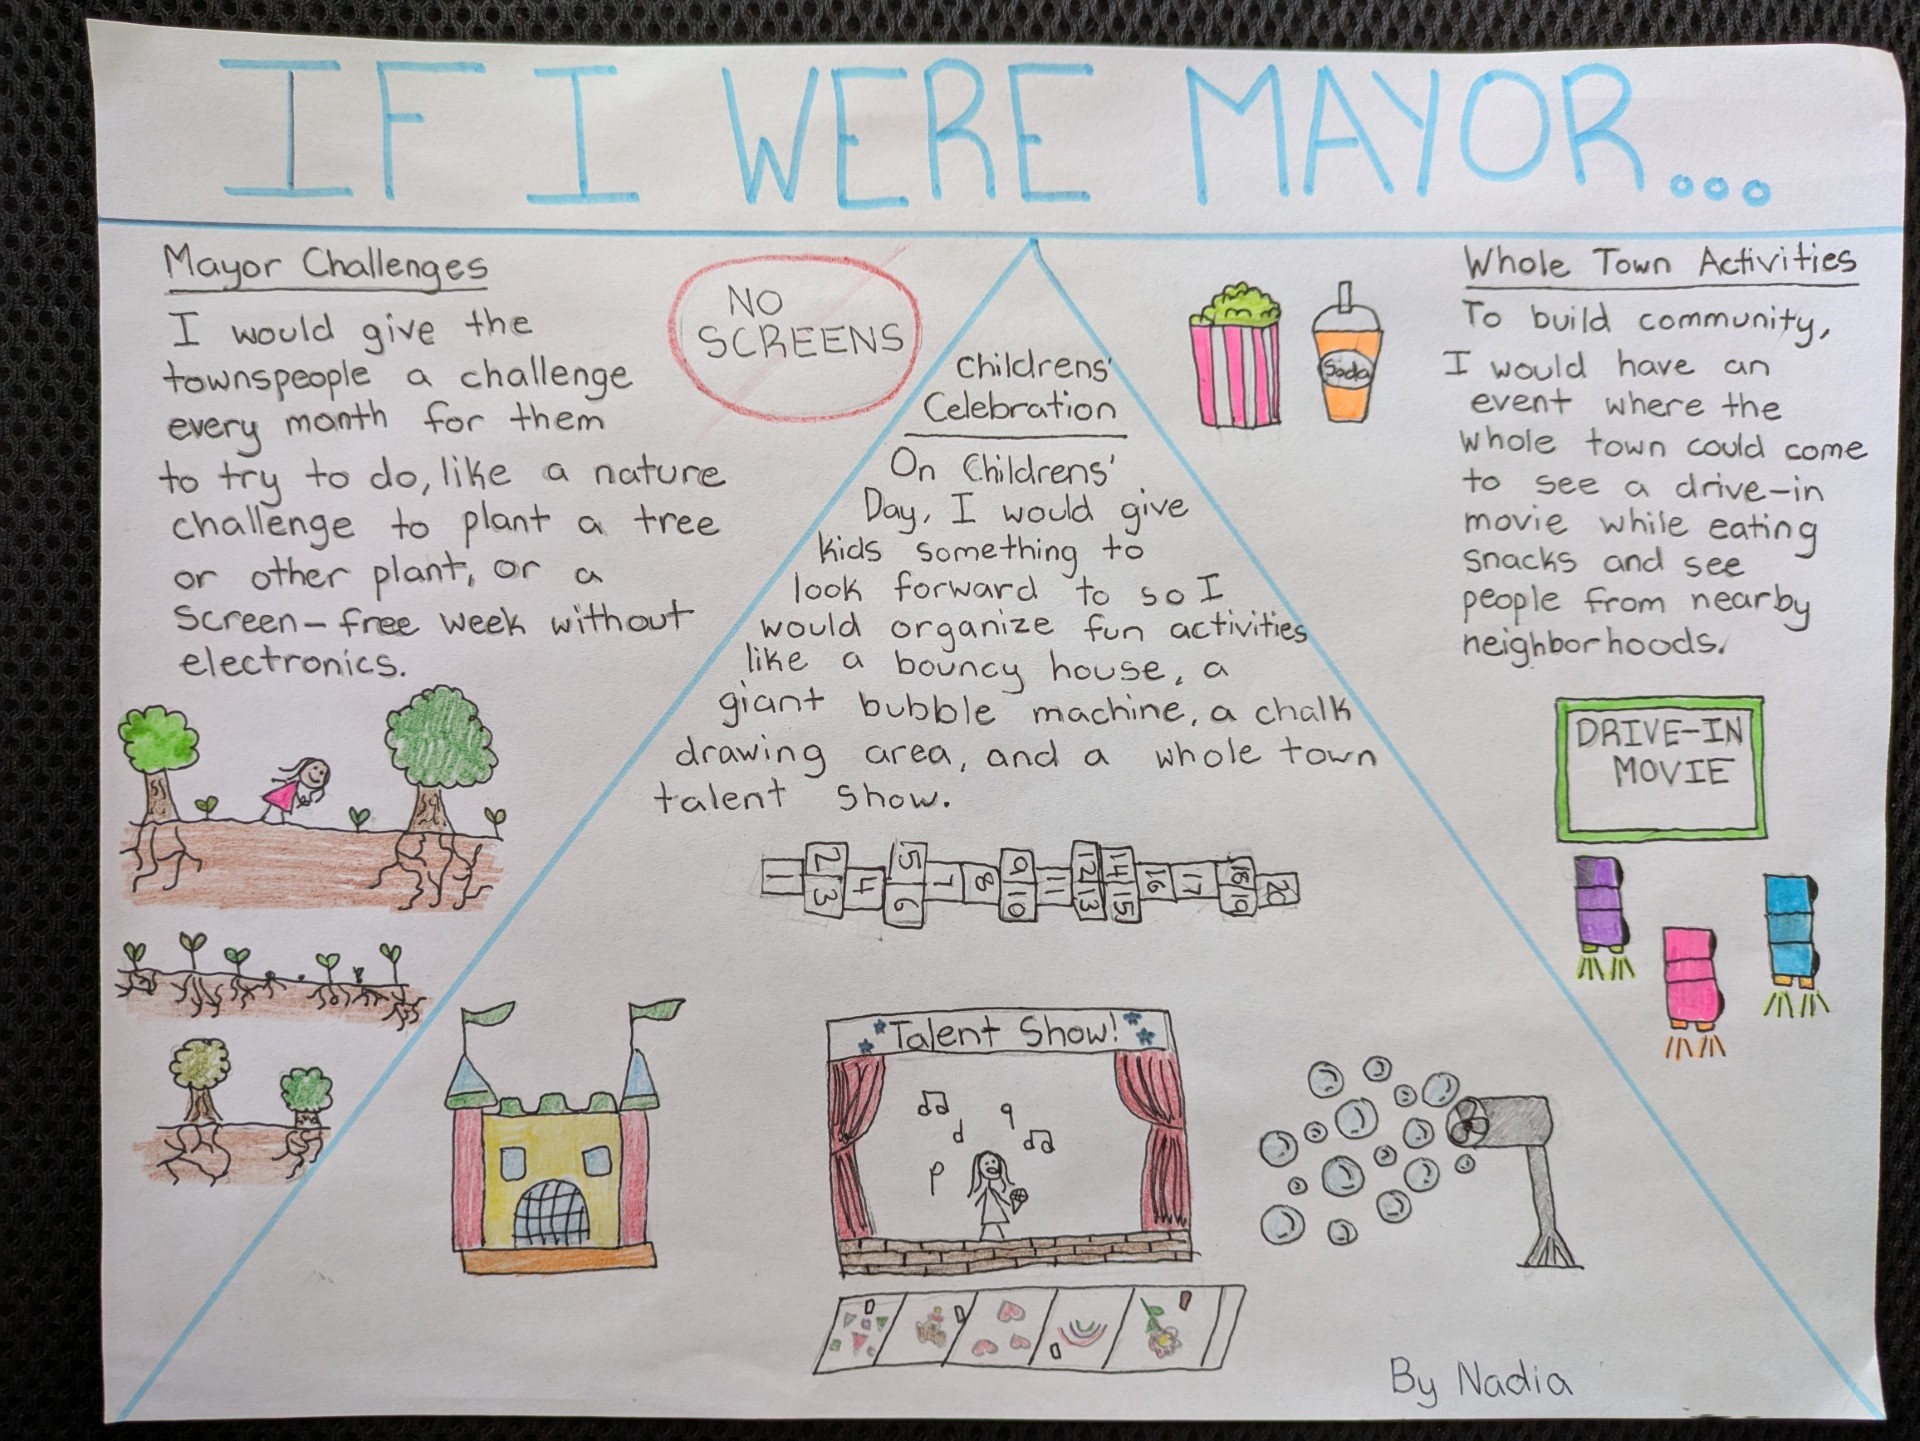 IF I WERE MAYOR...
Mayor Challenges
I would give the
townspeople a challenge
every month for them
to try to do, like a nature
challenge to plant a tree
or other plant, or a
screen-free week without
electronics.
NO
SCREENS
Childrens'
Celebration
On Childrens'
Day, I would give
kids something to
look forward to so I
would organize fun activities
like a bouncy house, a
giant bubble machine, a chalk
drawing area, and a whole town
talent show.
1 2 3 4 5 6 7 8 9 10 11 12 13 14 15 16 17 18 19 20
Talent Show!
Soda
Whole Town Activities
To build community,
I would have an
event where the
whole town could come
to see a drive-in
movie while eating
snacks and see
people from nearby
neighborhoods.
DRIVE-IN
MOVIE
By Nadia